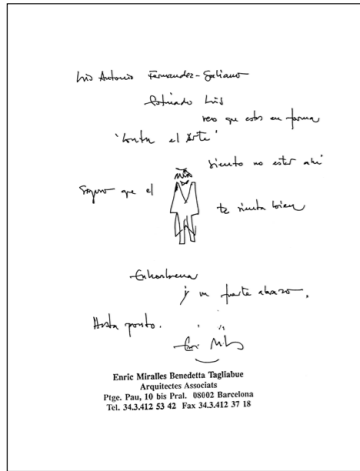 Luis Antonio Fernandez-Galiano
Estimado Luis
veo que estas en forma
"Contra el Arte"
siento no estar ahi
Seguro que el
te sienta bien
Enhorabuena
y un fuerte abrazo,
Hasta pronto.
Enric Miralles Benedetta Tagliabue
Arquitectes Associats
Ptge. Pau, 10 bis Pral. 08002 Barcelona
Tel. 34.3.412 53 42 Fax 34.3.412 37 18